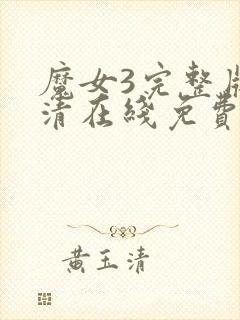 魔女3完整版
清在线免費
黄玉清